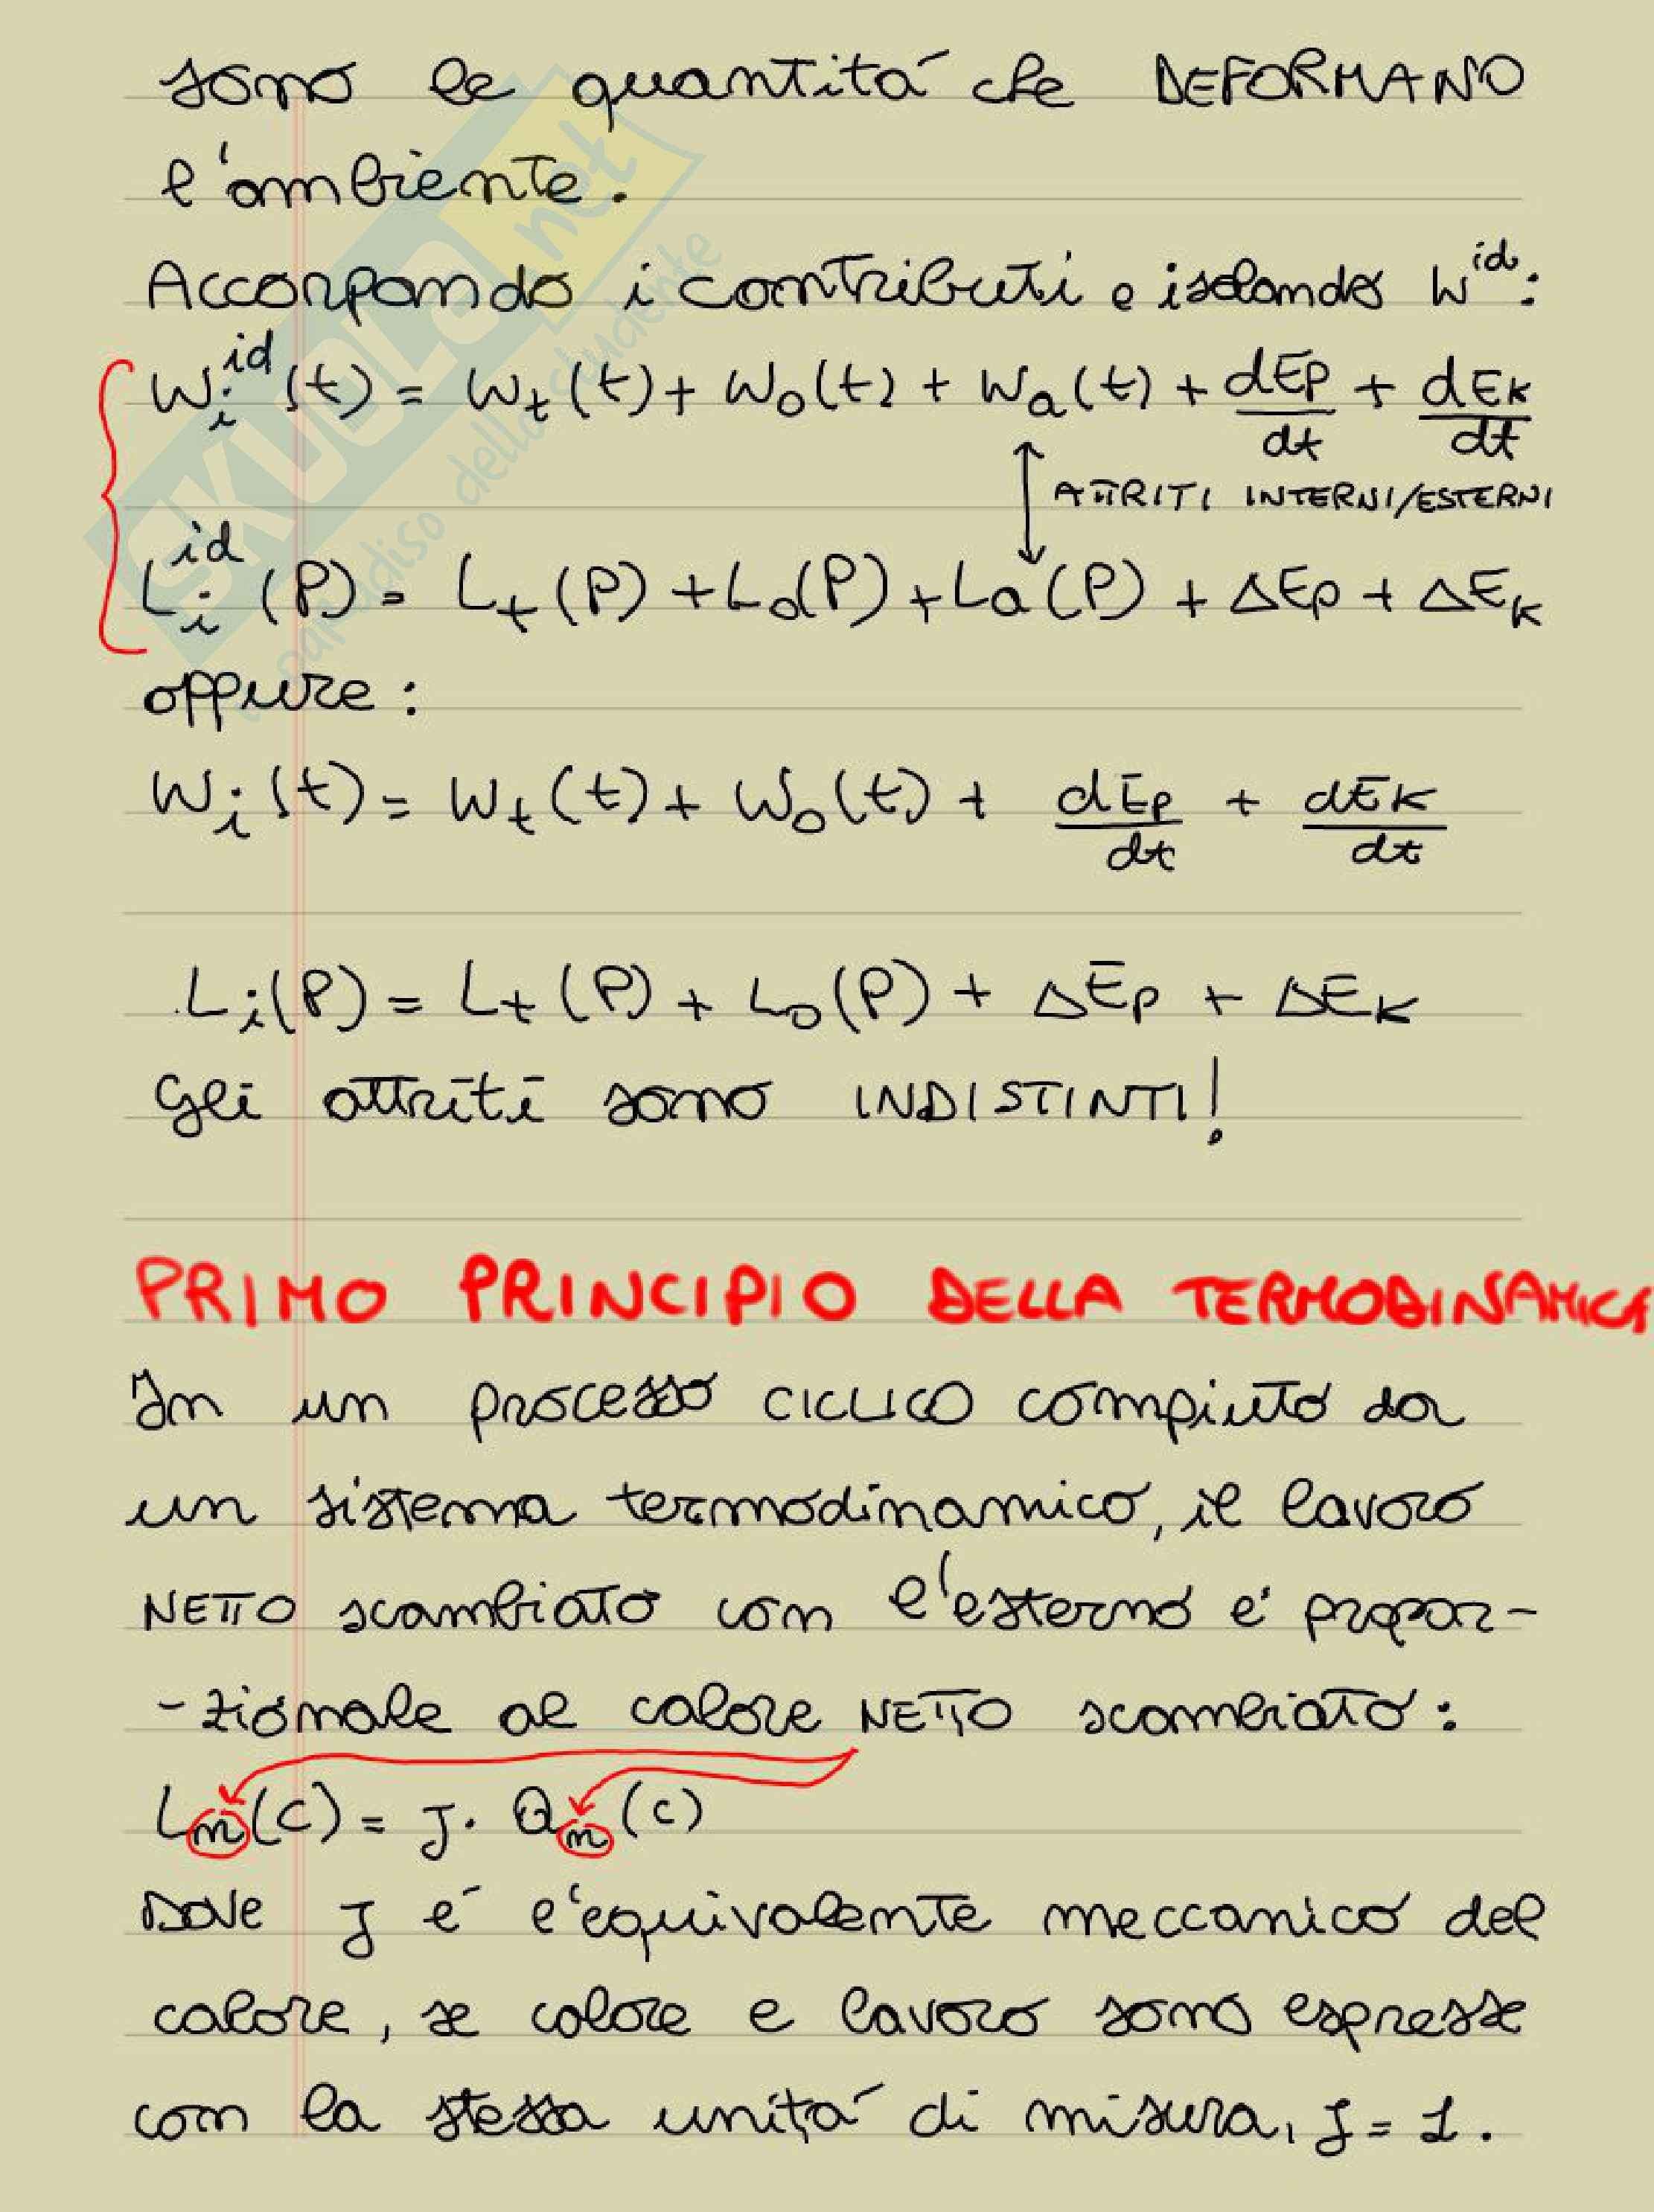 sono le quantitá che DEFORMANO
l'ambiente.
Accorpando i contributi e isolando W^id:
W_i^id(t) = W_t(t) + W_o(t) + W_a(t) + dEp/dt + dEk/dt
ATTRITI INTERNI/ESTERNI
L_i^id(P) = L_t(P) + L_o(P) + L_a(P) + ΔEp + ΔEk
oppure:
W_i(t) = W_t(t) + W_o(t) + dEp/dt + dEk/dt
L_i(P) = L_t(P) + L_o(P) + ΔEp + ΔEk
Gli attriti sono INDISTINTI!
PRIMO PRINCIPIO DELLA TERMODINAMICA
In un processo CICLICO compiuto da
un sistema termodinamico, il lavoro
NETTO scambiato con l'esterno e' propor-
-zionale al calore NETTO scambiato:
L_n(C) = J · Q_n(C)
Dove J é l'equivalente meccanico del
calore, se calore e lavoro sono espresse
con la stessa unitá di misura, J = 1.
SKUOLA.net
il paradiso dello studente